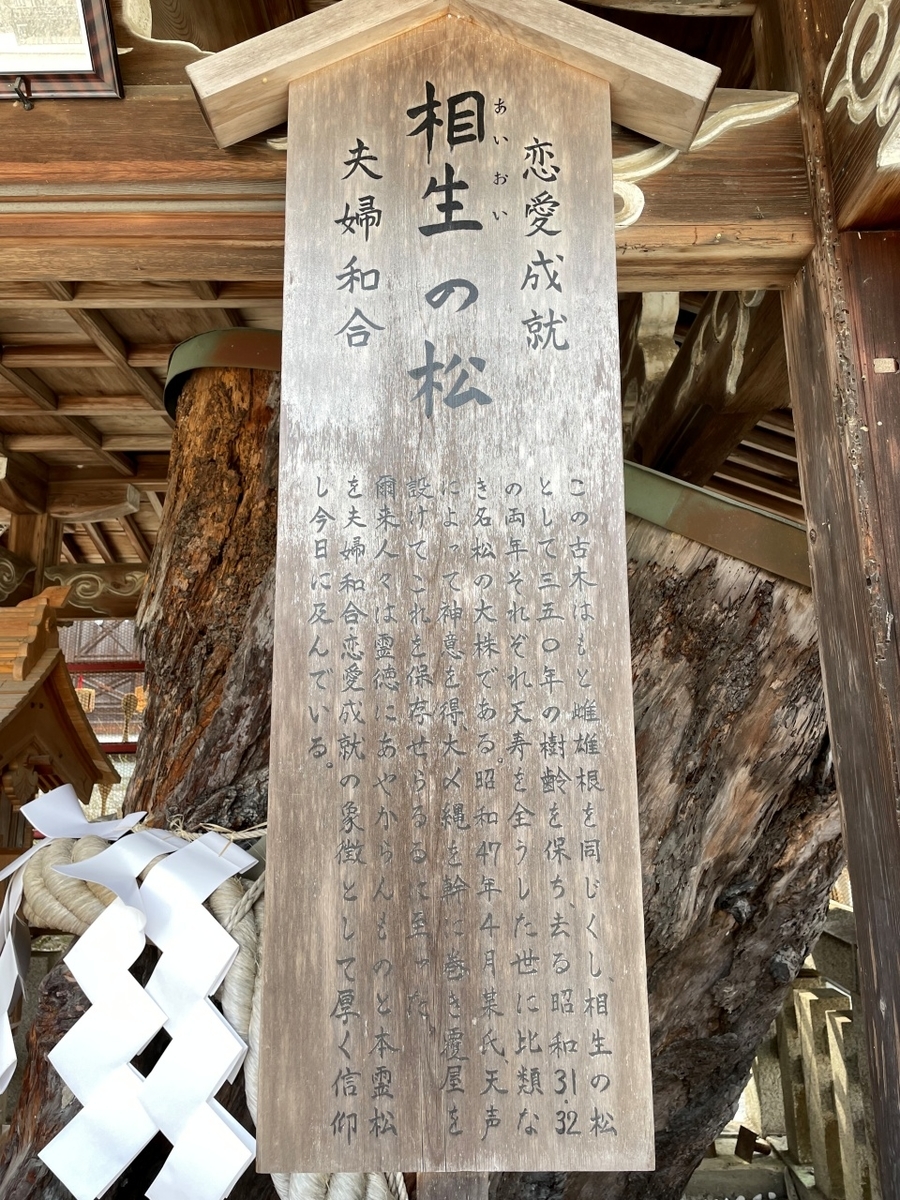 恋愛成就
相生の松
あいおい
夫婦和合
この古木はもと雌雄根を同じくし、相生の松
として三五〇年の樹齢を保ち、去る昭和31.32
の両年それぞれ天寿を全うした世に比類な
き名松の大株である。昭和47年4月某氏天声
によって神意を得、大〆縄を幹に巻き覆屋を
設けてこれを保存せらるるに至った。
爾来人々は霊徳にあやからんものと本霊松
を夫婦和合恋愛成就の象徴として厚く信仰
し今日に及んでいる。